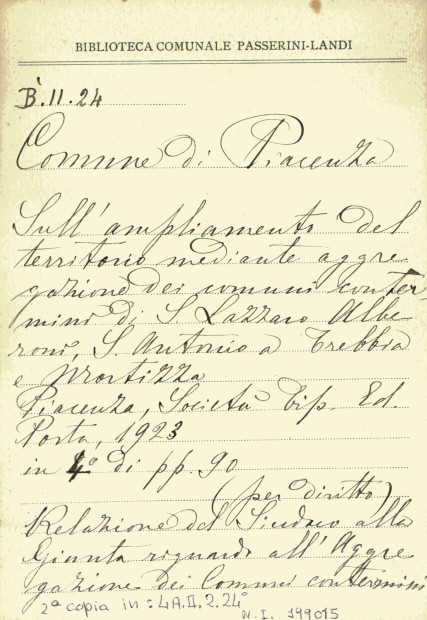 BIBLIOTECA COMUNALE PASSERINI-LANDI
B.II.24
Comune di Piacenza
Sull'ampliamento del
territorio mediante aggre
gazione dei comuni conter-
mini di S. Lazzaro Albe
roni, S. Antonio a Trebbia
e Mortizza
Piacenza, Società Tip. Ed.
Porta, 1923
in 4° di pp. 90
(per diritto)
Relazione del Sindaco alla
Giunta riguardo all'Aggre
gazione dei Comuni contermini
2ª copia in: 4A.II.2.24°
N.I. 199015